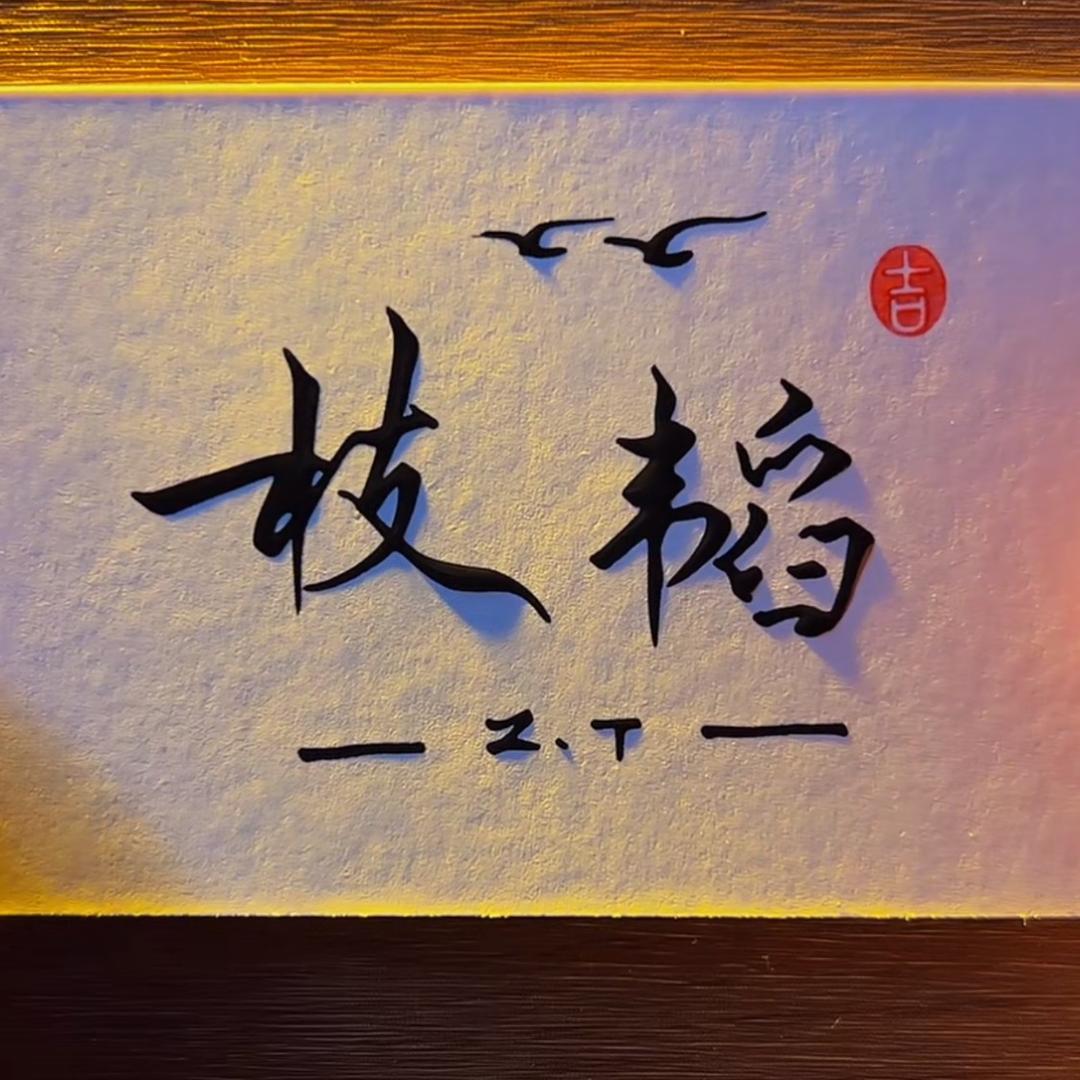 吉
枝韬
Z.T